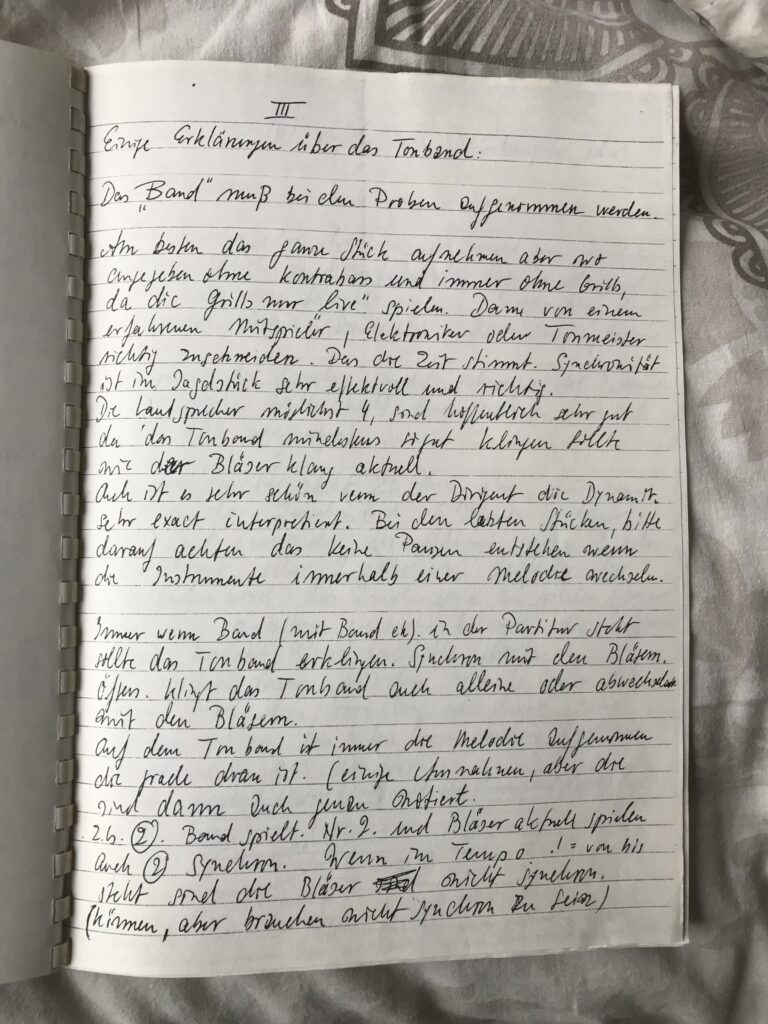 III
Einige Erklärungen über das Tonband:
Das "Band" muß bei den Proben aufgenommen werden.
Am besten das ganze Stück aufnehmen aber wo
angegeben ohne Kontrabass und immer ohne Grills,
da die Grills nur "live" spielen. Dann von einem
erfahrenen Mitspieler, Elektroniker oder Tonmeister
richtig zuschneiden. Das die Zeit stimmt. Synchronität
ist im Jagdstück sehr effektvoll und richtig.
Die Lautsprecher möglichst 4, sind hoffentlich sehr gut
da das Tonband mindestens so gut klingen sollte
wie der Bläserklang aktuell.
Auch ist es sehr schön wenn der Dirigent die Dynamik
sehr exact interpretiert. Bei den letzten Stücken, bitte
darauf achten das keine Pausen entstehen wenn
die Instrumente innerhalb einer Melodie wechseln.
Immer wenn Band (mit Band etc). in der Partitur steht
sollte das Tonband erklingen. Synchron mit den Bläsern.
Öfters. klingt das Tonband auch alleine oder abwechselnd
mit den Bläsern.
Auf dem Tonband ist immer die Melodie aufgenommen
die grade dran ist. (einige Ausnahmen, aber die
sind dann auch genau notiert.
z.b. (2). Band spielt. Nr. 2. und Bläser aktuell spielen
auch (2) Synchron. Wenn im Tempo .! = von bis
steht sind die Bläser nicht synchron.
(können, aber brauchen nicht synchron zu sein)